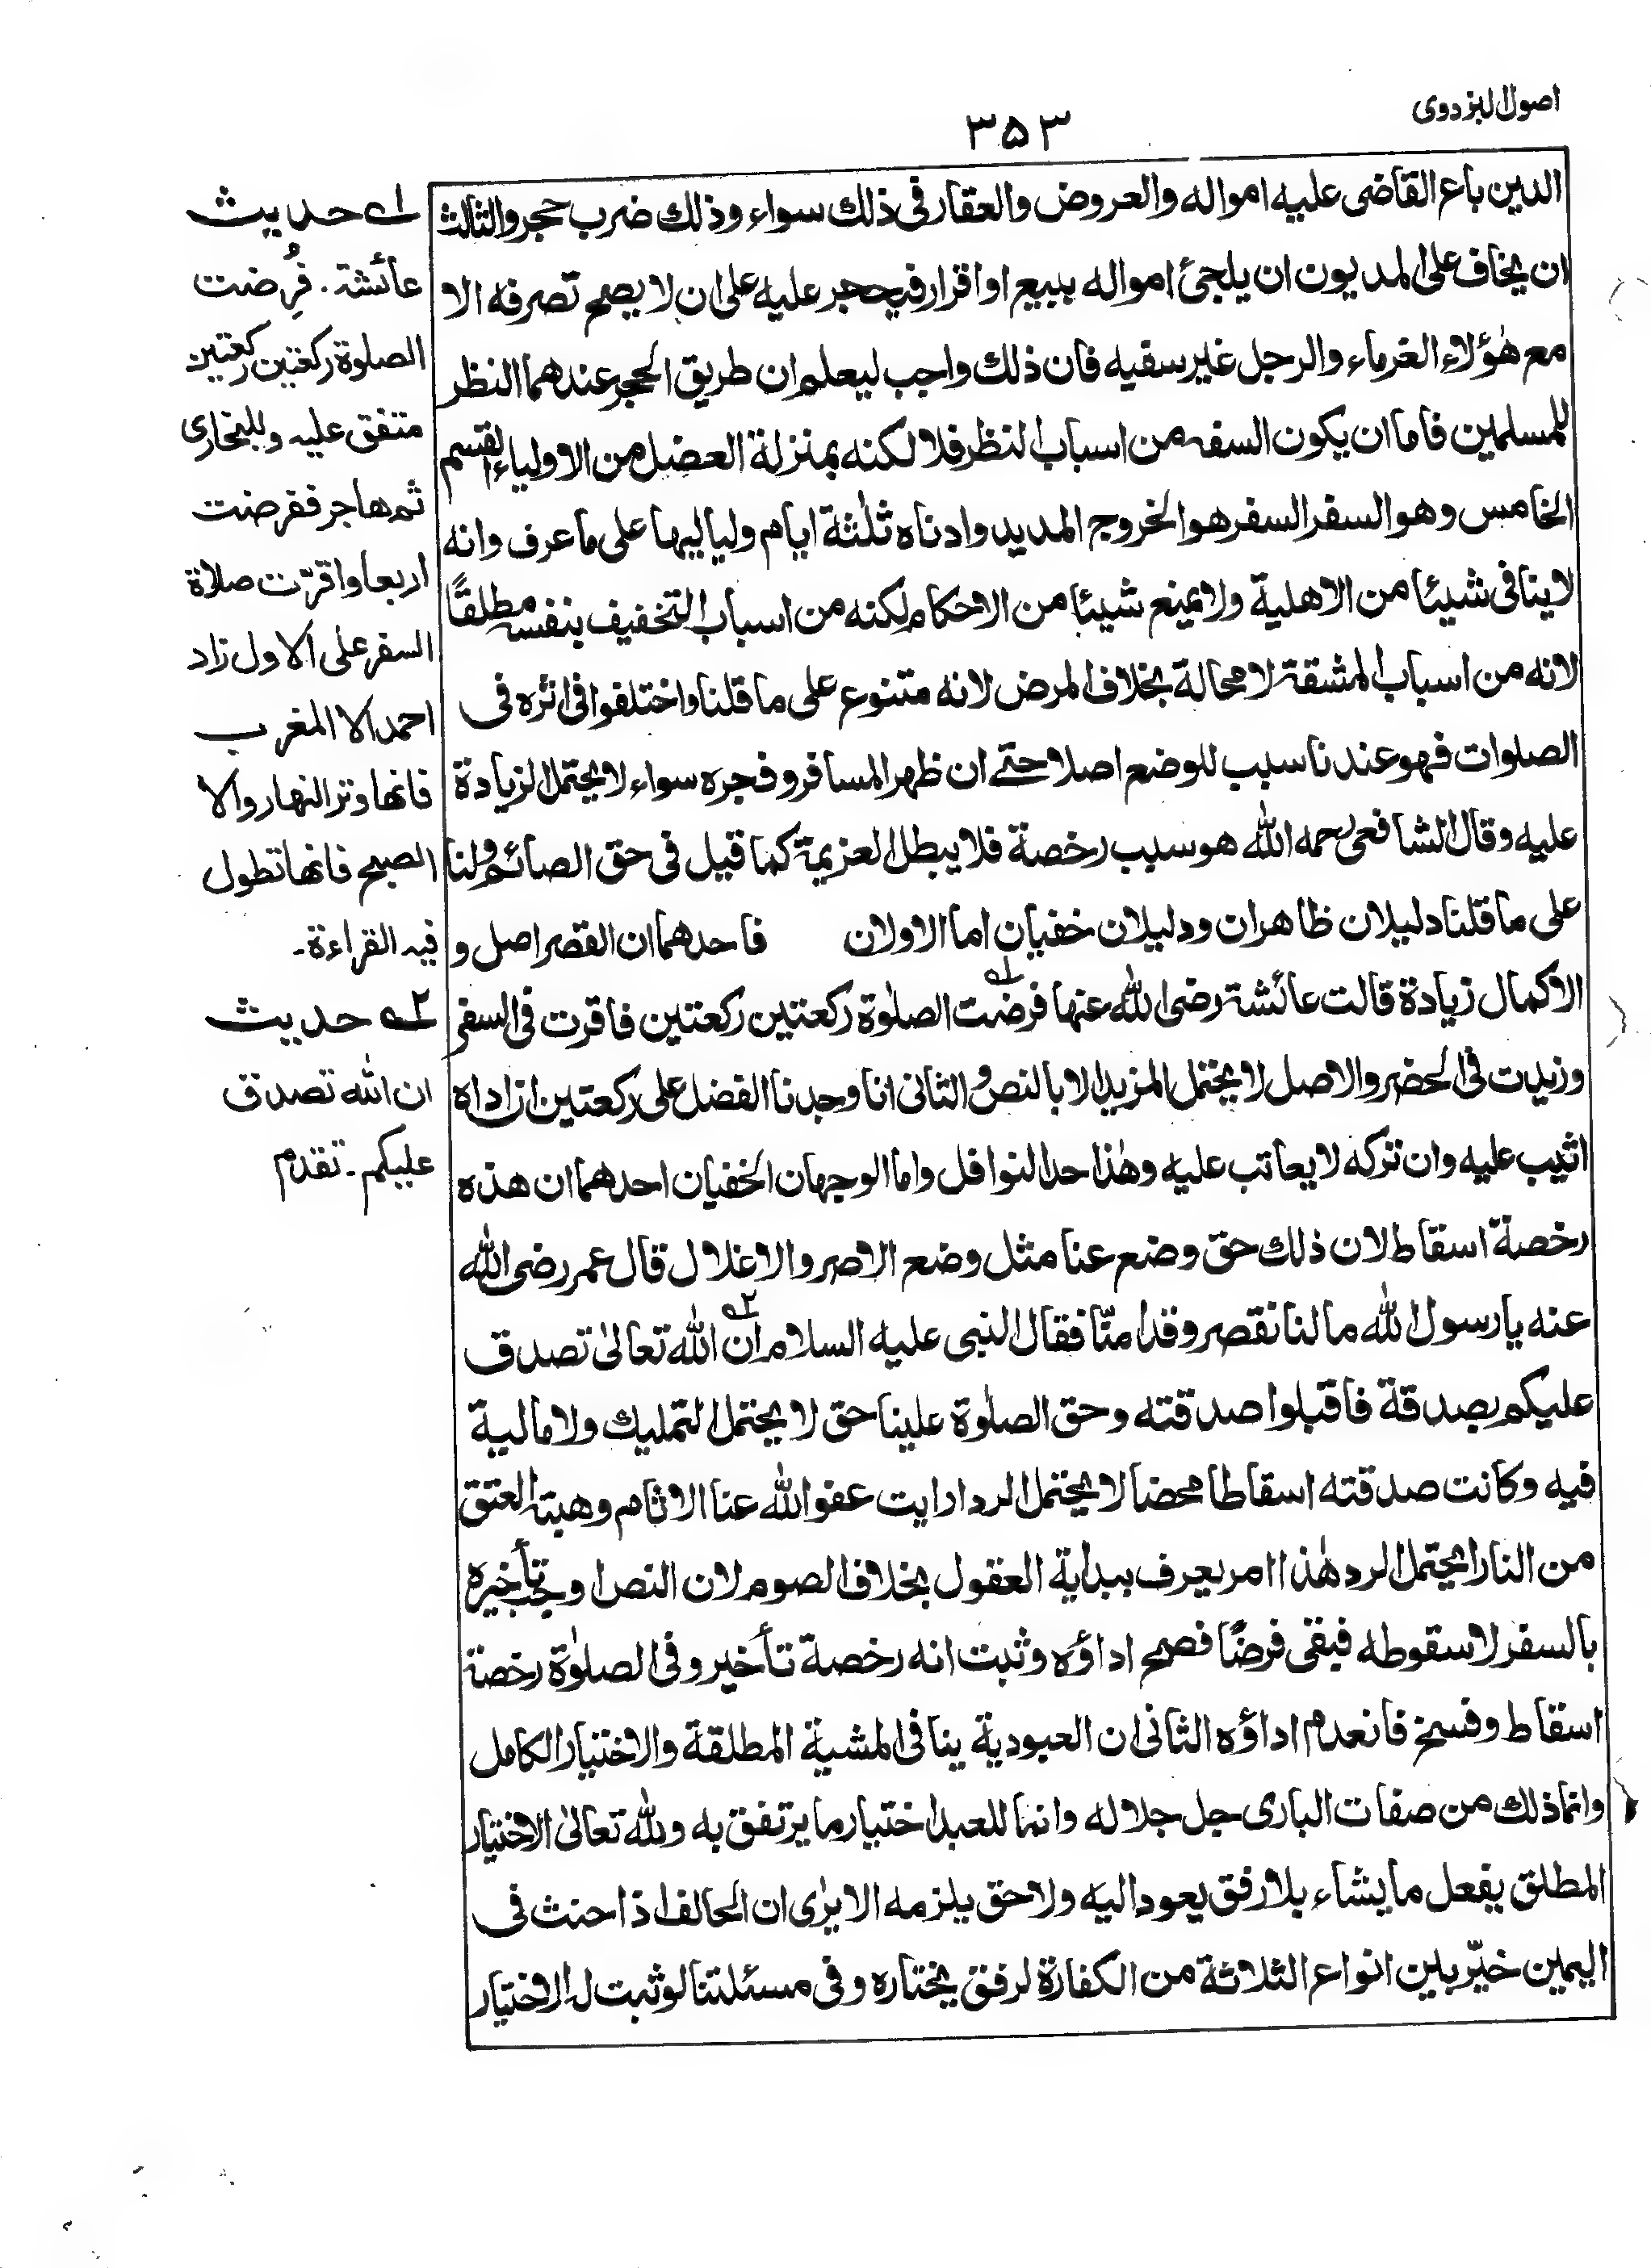 اصول البزدوى
۳۵۳
الدين باع القاضى عليه امواله والعروض والعقار فى ذلك سواء وذلك ضرب حجر والثالث
ان يخاف على المديون ان يلجئ امواله ببيع او اقرار فيحجر عليه على ان لا يصح تصرفه الا
مع هٰؤلاء الغرماء والرجل غير سفيه فان ذلك واجب ليعلم ان طريق الحجر عندهما النظر
للمسلمين فاما ان يكون السفه من اسباب النظر فلا لكنه بمنزلة العضل من الاولياء القسم
الخامس وهو السفر السفر هو الخروج المديد وادناه ثلٰثة ايام ولياليها على ما عرف وانه
لا ينافى شيئا من الاهلية ولا يمنع شيئا من الاحكام لكنه من اسباب التخفيف بنفسه مطلقًا
لانه من اسباب المشقة لا محالة بخلاف المرض لانه متنوع على ما قلنا واختلفوا فى اثره فى
الصلوات فهو عندنا سبب للوضع اصلا حتے ان ظهر المسافر وفجره سواء لا يحتمل الزيادة
عليه وقال الشافعى رحمه الله هو سبب رخصة فلا يبطل العزيمة كما قيل فى حق الصائم ولنا
على ما قلنا دليلان ظاهران ودليلان خفيان اما الاولان فاحدهما ان القصر اصل و
الاكمال زيادة قالت عائشة رضى الله عنها فرضت ۱ے الصلٰوة ركعتين ركعتين فاقرت فى السفر
وزيدت فى الحضر والاصل لا يحتمل المزيد الا بالنص والثانى انا وجدنا الفضل على ركعتين ان اداه
اثيب عليه وان تركه لا يعاتب عليه وهٰذا حد النوافل واما الوجهان الخفيان احدهما ان هذه
رخصة اسقاط لان ذلك حق وضع عنا مثل وضع الاصر والاغلال قال عمر رضى الله
عنه يا رسول الله ما لنا نقصر وقد امنّا فقال النبى عليه السلام ان ۲ے الله تعالىٰ تصدق
عليكم بصدقة فاقبلوا صدقته وحق الصلٰوة علينا حق لا يحتمل التمليك ولا مالية
فيه وكانت صدقته اسقاطا محضا لا يحتمل الرد ارايت عفو الله عنا الاثام وهبة العتق
من النار ايحتمل الرد هٰذا امر يعرف ببداية العقول بخلاف الصوم لان النص اوجب تأخيره
بالسفر لا سقوطه فبقى فرضًا فصح اداؤه وثبت انه رخصة تأخير وفى الصلٰوة رخصة
اسقاط وفسخ فانعدم اداؤه الثانى ان العبودية ينافى المشية المطلقة والاختيار الكامل
وانما ذلك من صفات البارى جل جلاله وانما للعبد اختيار ما يرتفق به ولله تعالىٰ الاختيار
المطلق يفعل ما يشاء بلا رفق يعود اليه ولا حق يلزمه الا يرٰى ان الحالف اذا حنث فى
اليمين خيّر بين انواع الثلاثة من الكفارة لرفق يختاره وفى مسئلتنا لو ثبت له الاختيار
۱ے حديث
عائشة. فُرِضت
الصلوة ركعتين ركعتين
متفق عليه وللبخارى
ثم هاجر ففرضت
اربعا واقرّت صلاة
السفر على الاول زاد
احمد الا المغرب
فانها وتر النهار والا
الصبح فانها تطول
فيه القراءة۔
۲ے حديث
ان الله تصدق
عليكم۔ تقدم